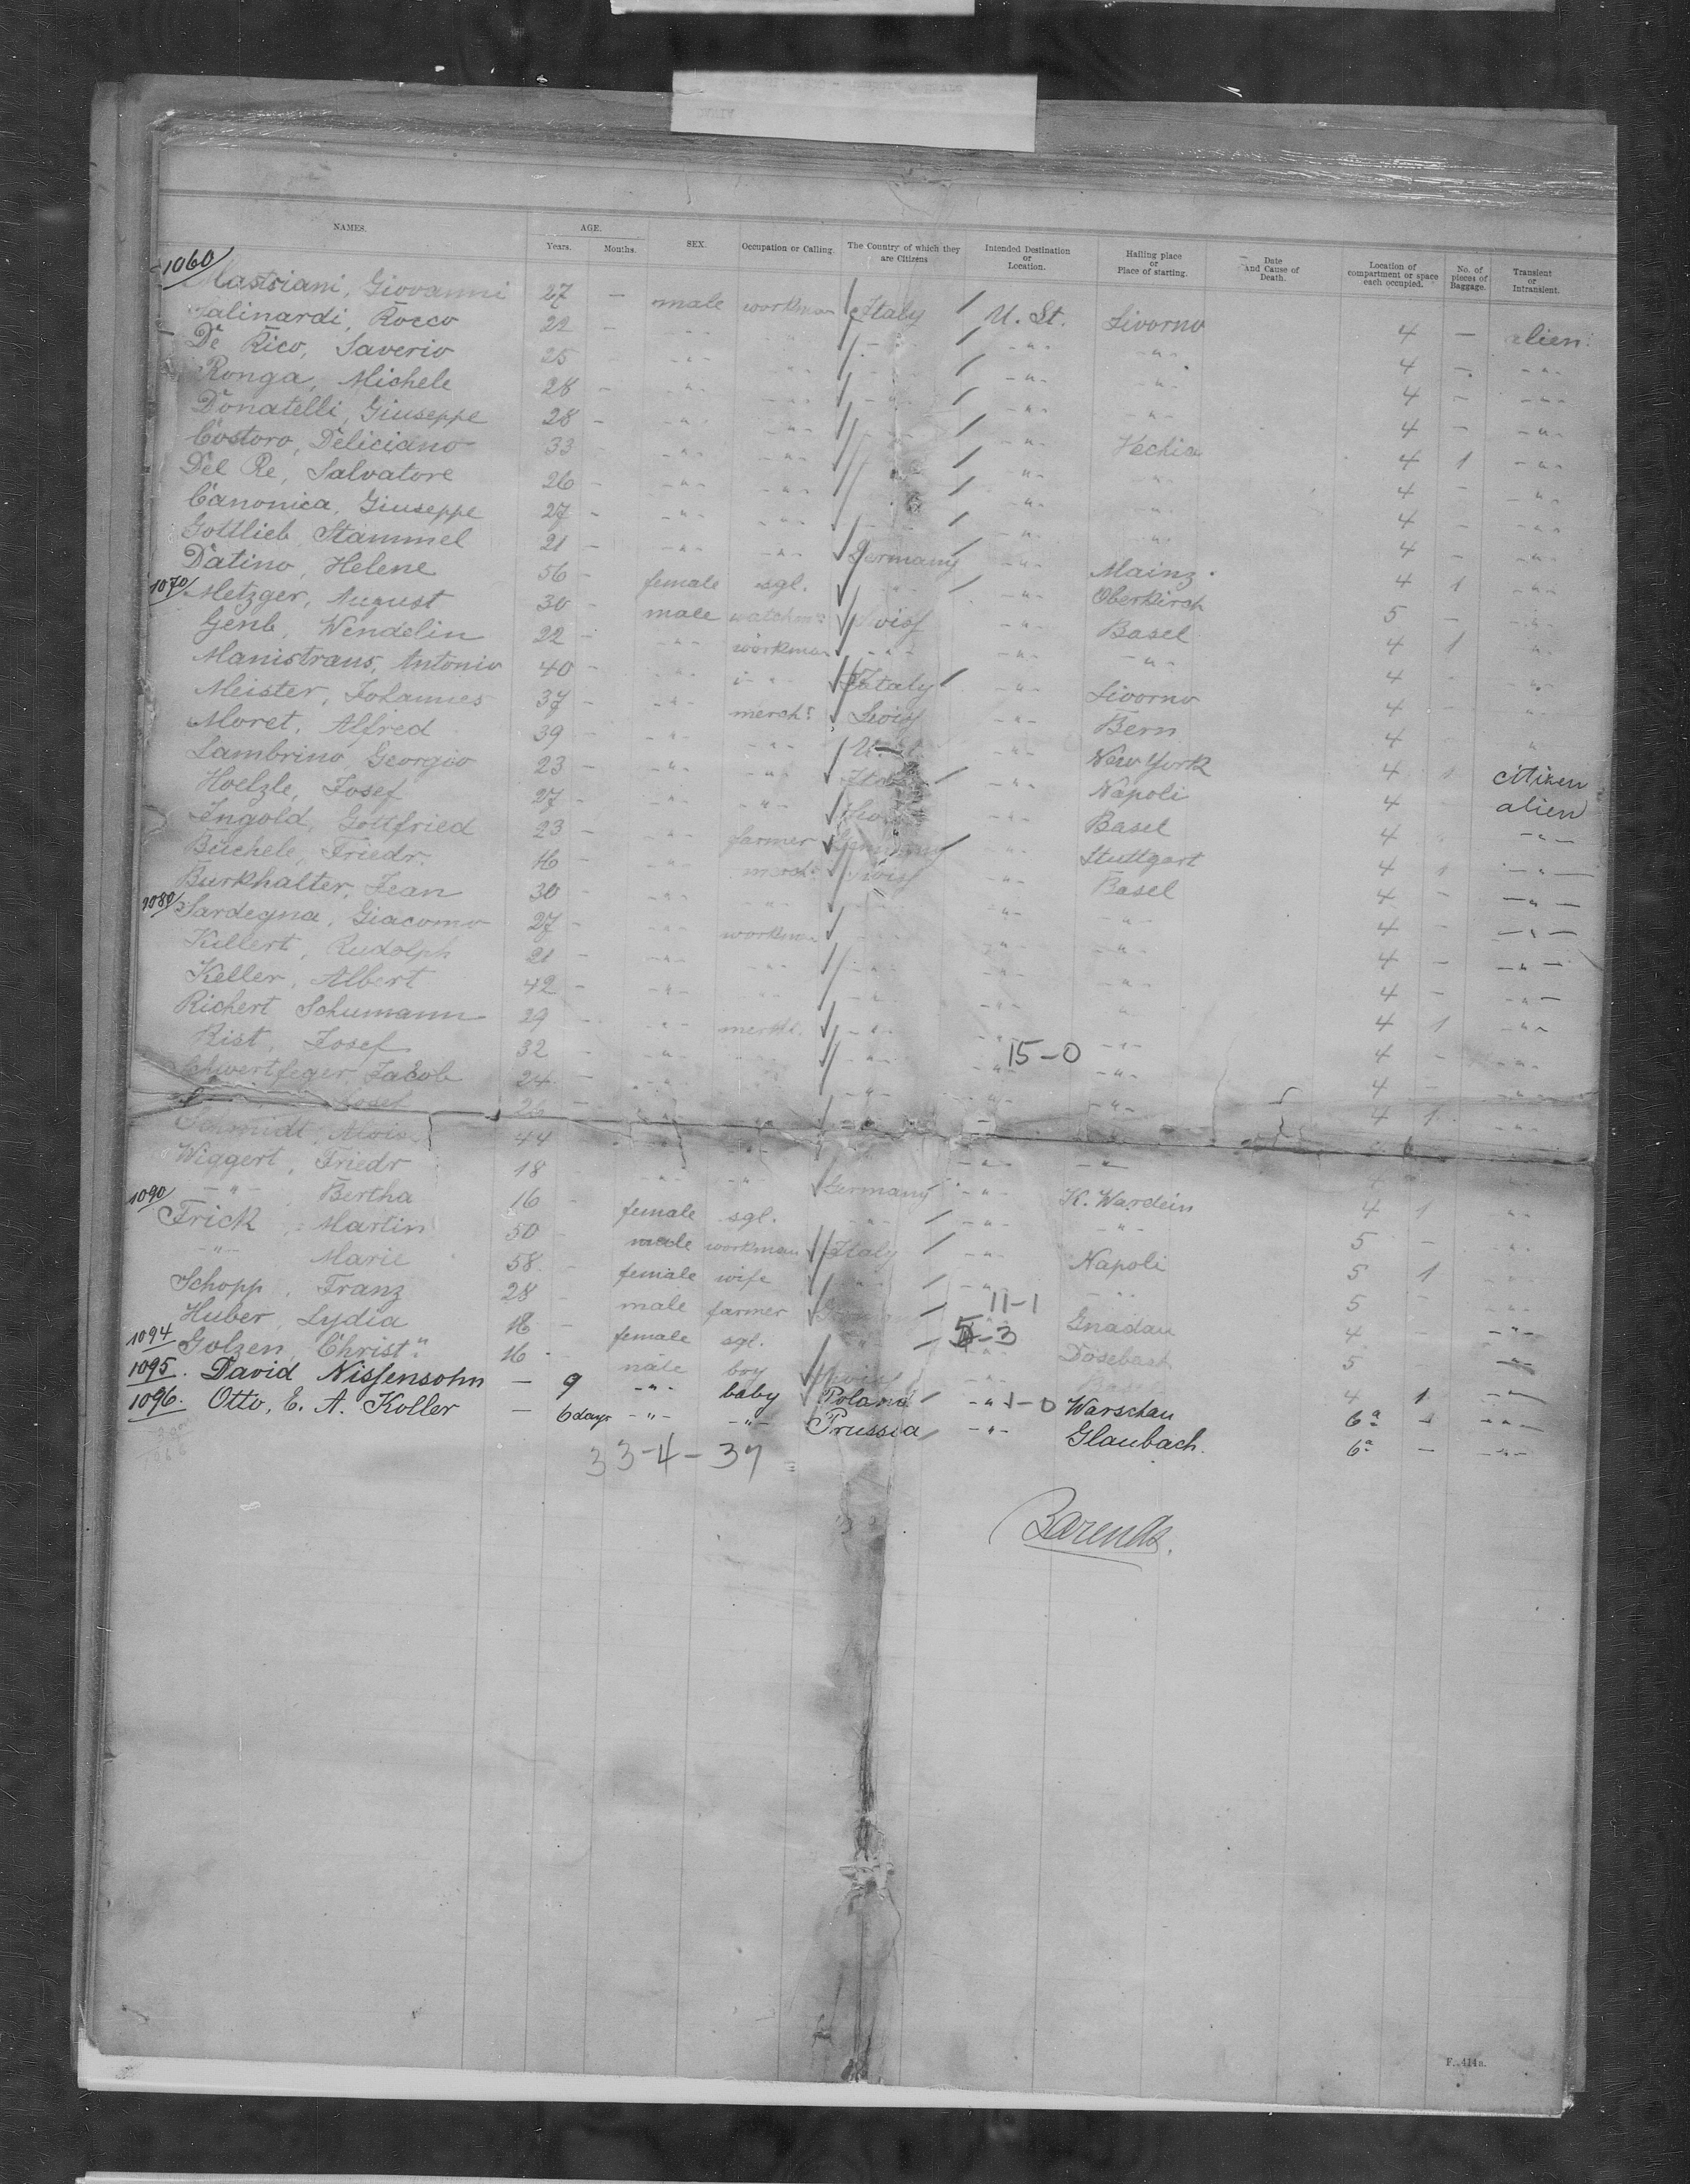 NAMES. AGE. Years. Months. SEX. Occupation or Calling. The Country of which they are Citizens Intended Destination or Location. Hailing place or Place of starting. Date and Cause of Death. Location of compartment or space each occupied. No. of pieces of Baggage. Transient or Intransient.
1060 Mastriani, Giovanni 27 — male workman Italy U. St. Livorno 4 — alien
Salinardi, Rocco 22 — -"- -"- -"- -"- -"- 4 — -"-
De Rico, Saverio 25 -"- -"- -"- -"- -"- 4 — -"-
Ronga, Michele 28 — -"- -"- -"- -"- -"- 4 — -"-
Donatelli, Giuseppe 28 — -"- -"- -"- -"- Vechia 4 1 -"-
Costoro, Deliciano 33 -"- -"- -"- -"- -"- 4 - -"-
Del Re, Salvatore 26 — -"- -"- -"- -"- -"- 4 - -"-
Canonica, Giuseppe 27 — -"- -"- -"- -"- -"- 4 - -"-
Gottlieb, Stammel 21 — -"- -"- Germany -"- Mainz 4 1 -"-
Datino, Helene 56 — female sgl. -"- -"- Oberkirch 5 — -"-
1070 Metzger, August 30 — male watchm. Swiss -"- Basel 4 1 -"-
Genb, Wendelin 22 — -"- workman -"- -"- -"- 4 - -"-
Manistraus, Antonio 40 — -"- -"- Italy -"- Livorno 4 - -"-
Meister, Johannes 37 — -"- merch. Swiss -"- Bern 4 - "
Moret, Alfred 39 — -"- -"- -"- New York 4 1 citizen
Lambrino, Georgio 23 — -"- -"- -"- Napoli 4 - alien
Hoelzle, Josef 27 — -"- -"- -"- Basel 4 -"-
Ingold, Gottfried 23 — -"- farmer Germany -"- Stuttgart 4 1 -"-
Büchele, Friedr. 16 — -"- merch. Swiss -"- Basel 4 — -"-
Burkhalter, Jean 30 -"- -"- -"- -"- -"- 4 — -"-
1080 Sardegna, Giacomo 27 — -"- workman -"- -"- -"- 4 — -"-
Kullert, Rudolph 21 — -"- -"- -"- -"- -"- 4 — -"-
Keller, Albert 42 — -"- -"- -"- -"- 4 1 -"-
Richert Schumann 29 -"- merch. -"- -"- -"- 4 — -"-
Rist, Josef 32 -"- -"- 15-0 -"- -"- 4 — -"-
Schwertfeger, Jacob 24 — -"- -"- -"- -"- 4 1 -"-
Josef 26 — -"- -"-
Schmidt, Alois 44 -"- -"- -"-
Wiggert, Friedr 18 -"- -"- Germany -"- K. Wardein 4 1 -"-
-"- Bertha 16 female sgl. -"- -"- -"- 5 — -"-
1090 Frick, Martin 50 — male workman Italy -"- Napoli 5 1
-"- Marie 58 — female wife -"- -"- -"- 5 — -"-
Schopp, Franz 28 male farmer 11-1 Gnadau 4 — -"-
Huber, Lydia 18 — female sgl. -"- 5-3 5 — -"-
1094 Golzen, Christ. 16 male boy -"- 4 1 -"-
1095. David Nissensohn — 9 -"- baby Poland -"- 1-0 Warschau 6a - -"-
1096. Otto, E. A. Koller — 6 days -"- -"- Prussia -"- Glaubach. 6a — -"-
33-4-37
Barends.
F. 414a.